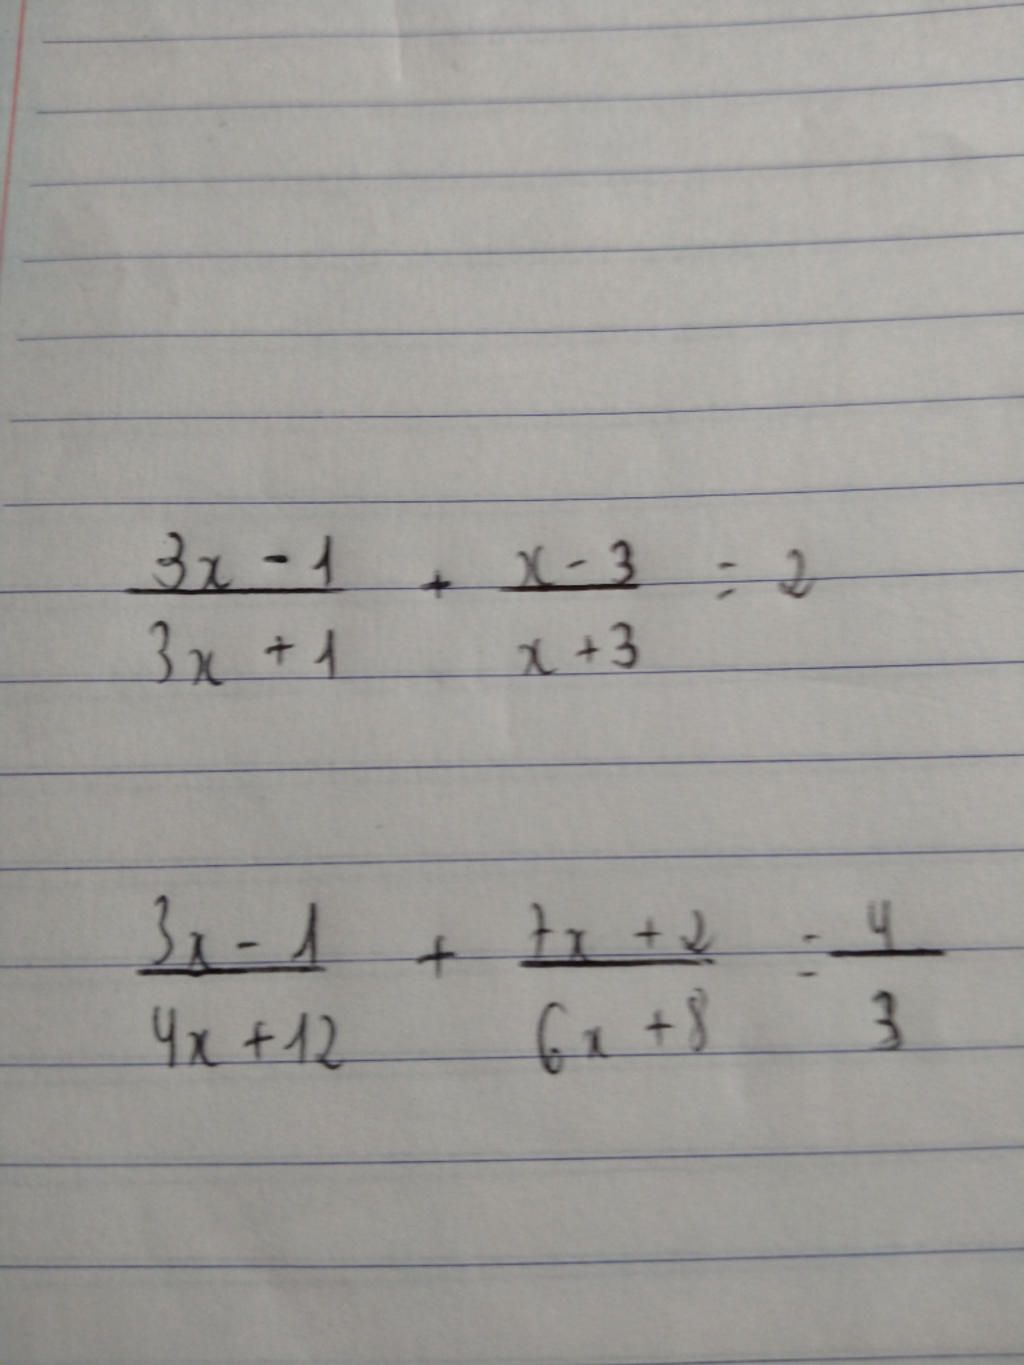 3x - 1 / 3x + 1 + x - 3 / x + 3 = 2
3x - 1 / 4x + 12 + 7x + 2 / 6x + 8 = 4 / 3